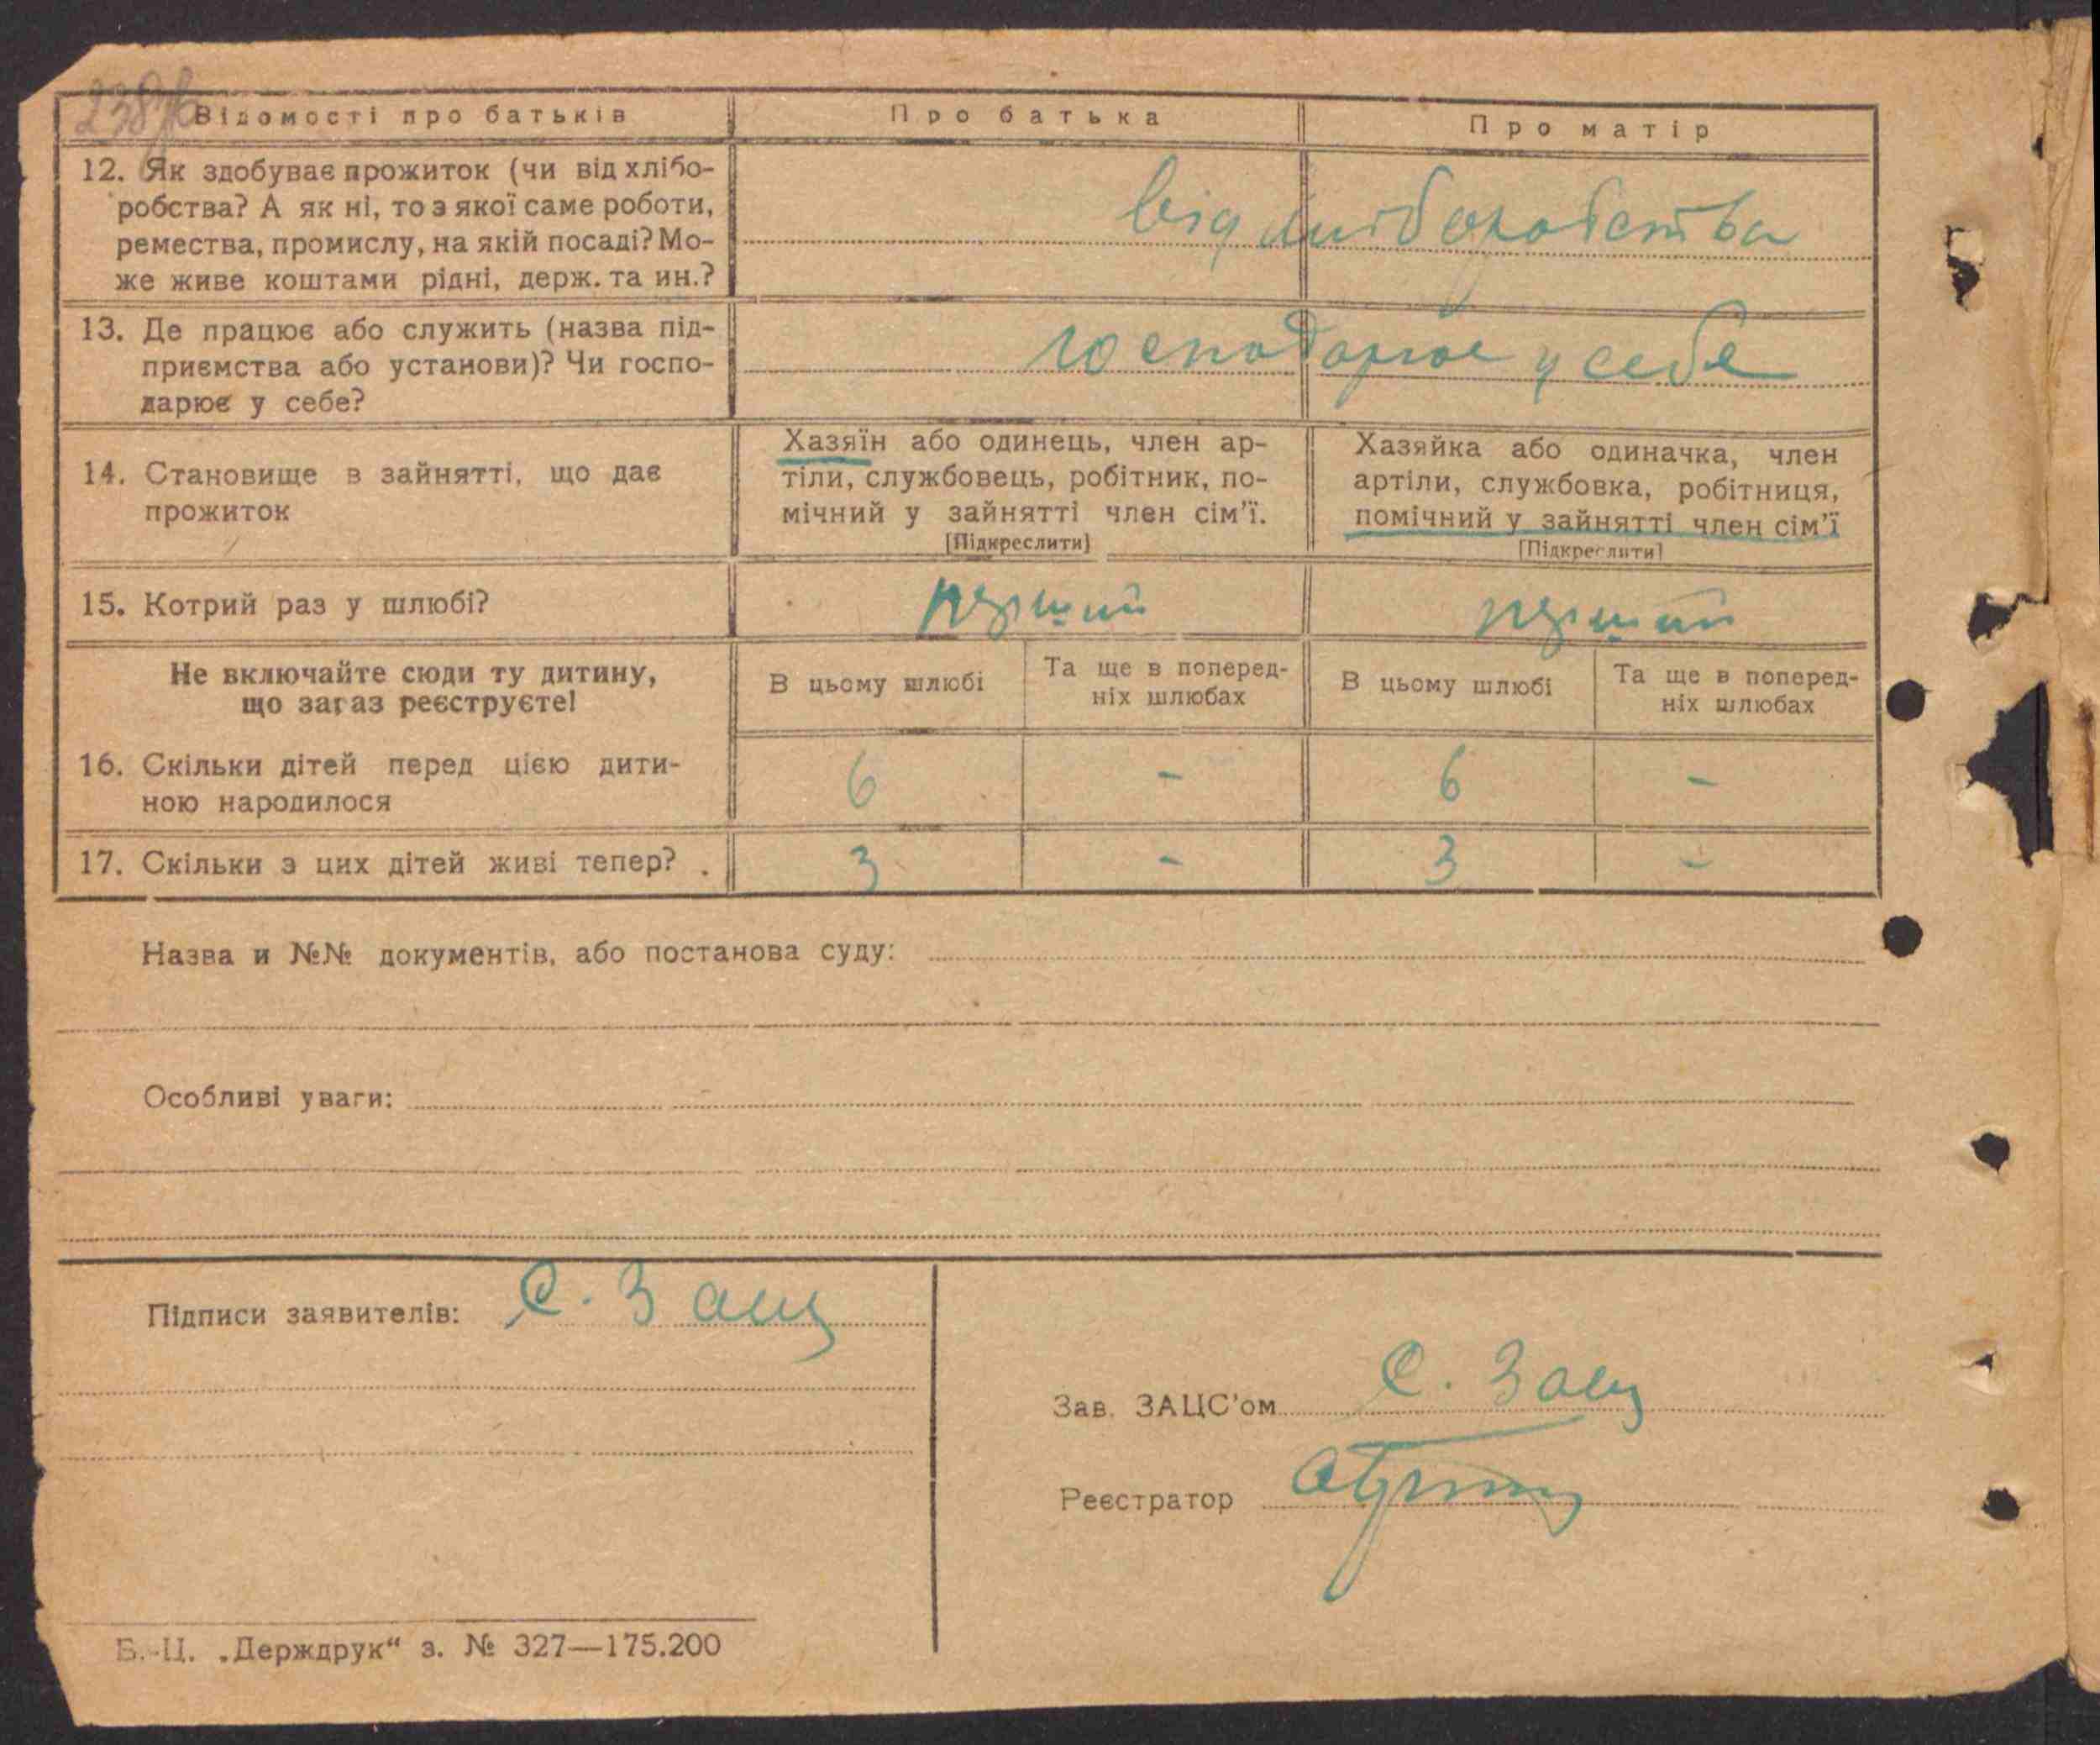 Відомості про батьків
Про батька
Про матір
12. Як здобуває прожиток (чи від хлібо-
робства? А як ні, то з якої саме роботи,
ремества, промислу, на якій посаді? Мо-
же живе коштами рідні, держ. та ин.?
від хліборобства
13. Де працює або служить (назва під-
приємства або установи)? Чи госпо-
дарює у себе?
господарює у себе
14. Становище в зайнятті, що дає
прожиток
Хазяїн або одинець, член ар-
тіли, службовець, робітник, по-
мічний у зайнятті член сім'ї.
[Підкреслити]
Хазяйка або одиначка, член
артіли, службовка, робітниця,
помічний у зайнятті член сім'ї
[Підкреслити]
15. Котрий раз у шлюбі?
перший
перший
Не включайте сюди ту дитину,
що зараз реєструєте!
В цьому шлюбі
Та ще в поперед-
ніх шлюбах
В цьому шлюбі
Та ще в поперед-
ніх шлюбах
16. Скільки дітей перед цією дити-
ною народилося
6 - 6 -
17. Скільки з цих дітей живі тепер? .
3 - 3 -
Назва и №№ документів, або постанова суду:
Особливі уваги:
Підписи заявителів: С. Заєц
Зав. ЗАЦС'ом С. Заєц
Реєстратор
Б.-Ц. „Держдрук“ з. № 327—175.200